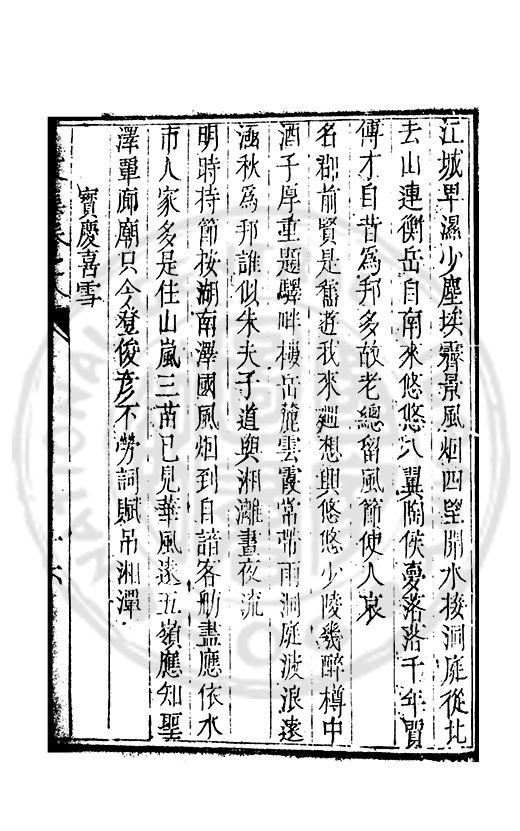 江城卑濕少塵埃霽景風烟四望開水接洞庭從北
去山連衡岳自南來悠悠八翼陶侯夢落落千年賈
傅才自昔爲邦多故老總留風節使人哀
名郡前賢是舊遊我來遐想興悠悠少陵幾醉樽中
酒子厚重題驛畔樓岳麓雲霞常帶雨洞庭波浪遠
涵秋爲邦誰似朱夫子道與湘灕晝夜流
明時持節按湖南澤國風烟到自諳客舫盡應依水
市人家多是住山嵐三苗已見華風遠五嶺應知聖
澤覃廊廟只今登俊彥不勞詞賦吊湘潭
寶慶喜雪